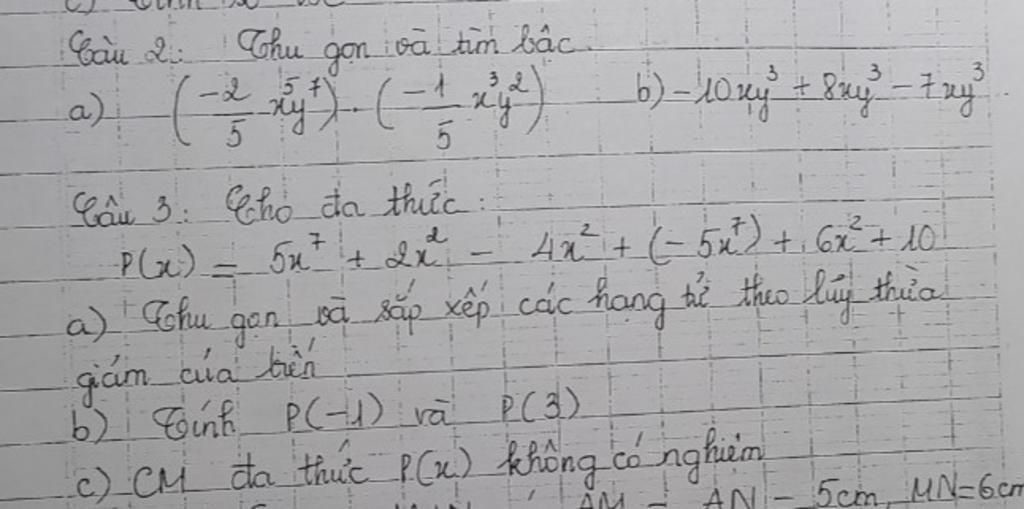 Câu 2: Thu gọn và tìm bậc.
a) (-2/5 x⁵y⁷) . (-1/5 x³y²) b) -10xy³ + 8xy³ - 7xy³.
Câu 3: Cho đa thức:
P(x) = 5x⁷ + 2x² - 4x² + (-5x⁷) + 6x² + 10
a) Thu gọn và sắp xếp các hạng tử theo lũy thừa
giảm của biến
b) Tính P(-1) và P(3)
c) CM đa thức P(x) không có nghiệm
AM = AN = 5cm, MN=6cm